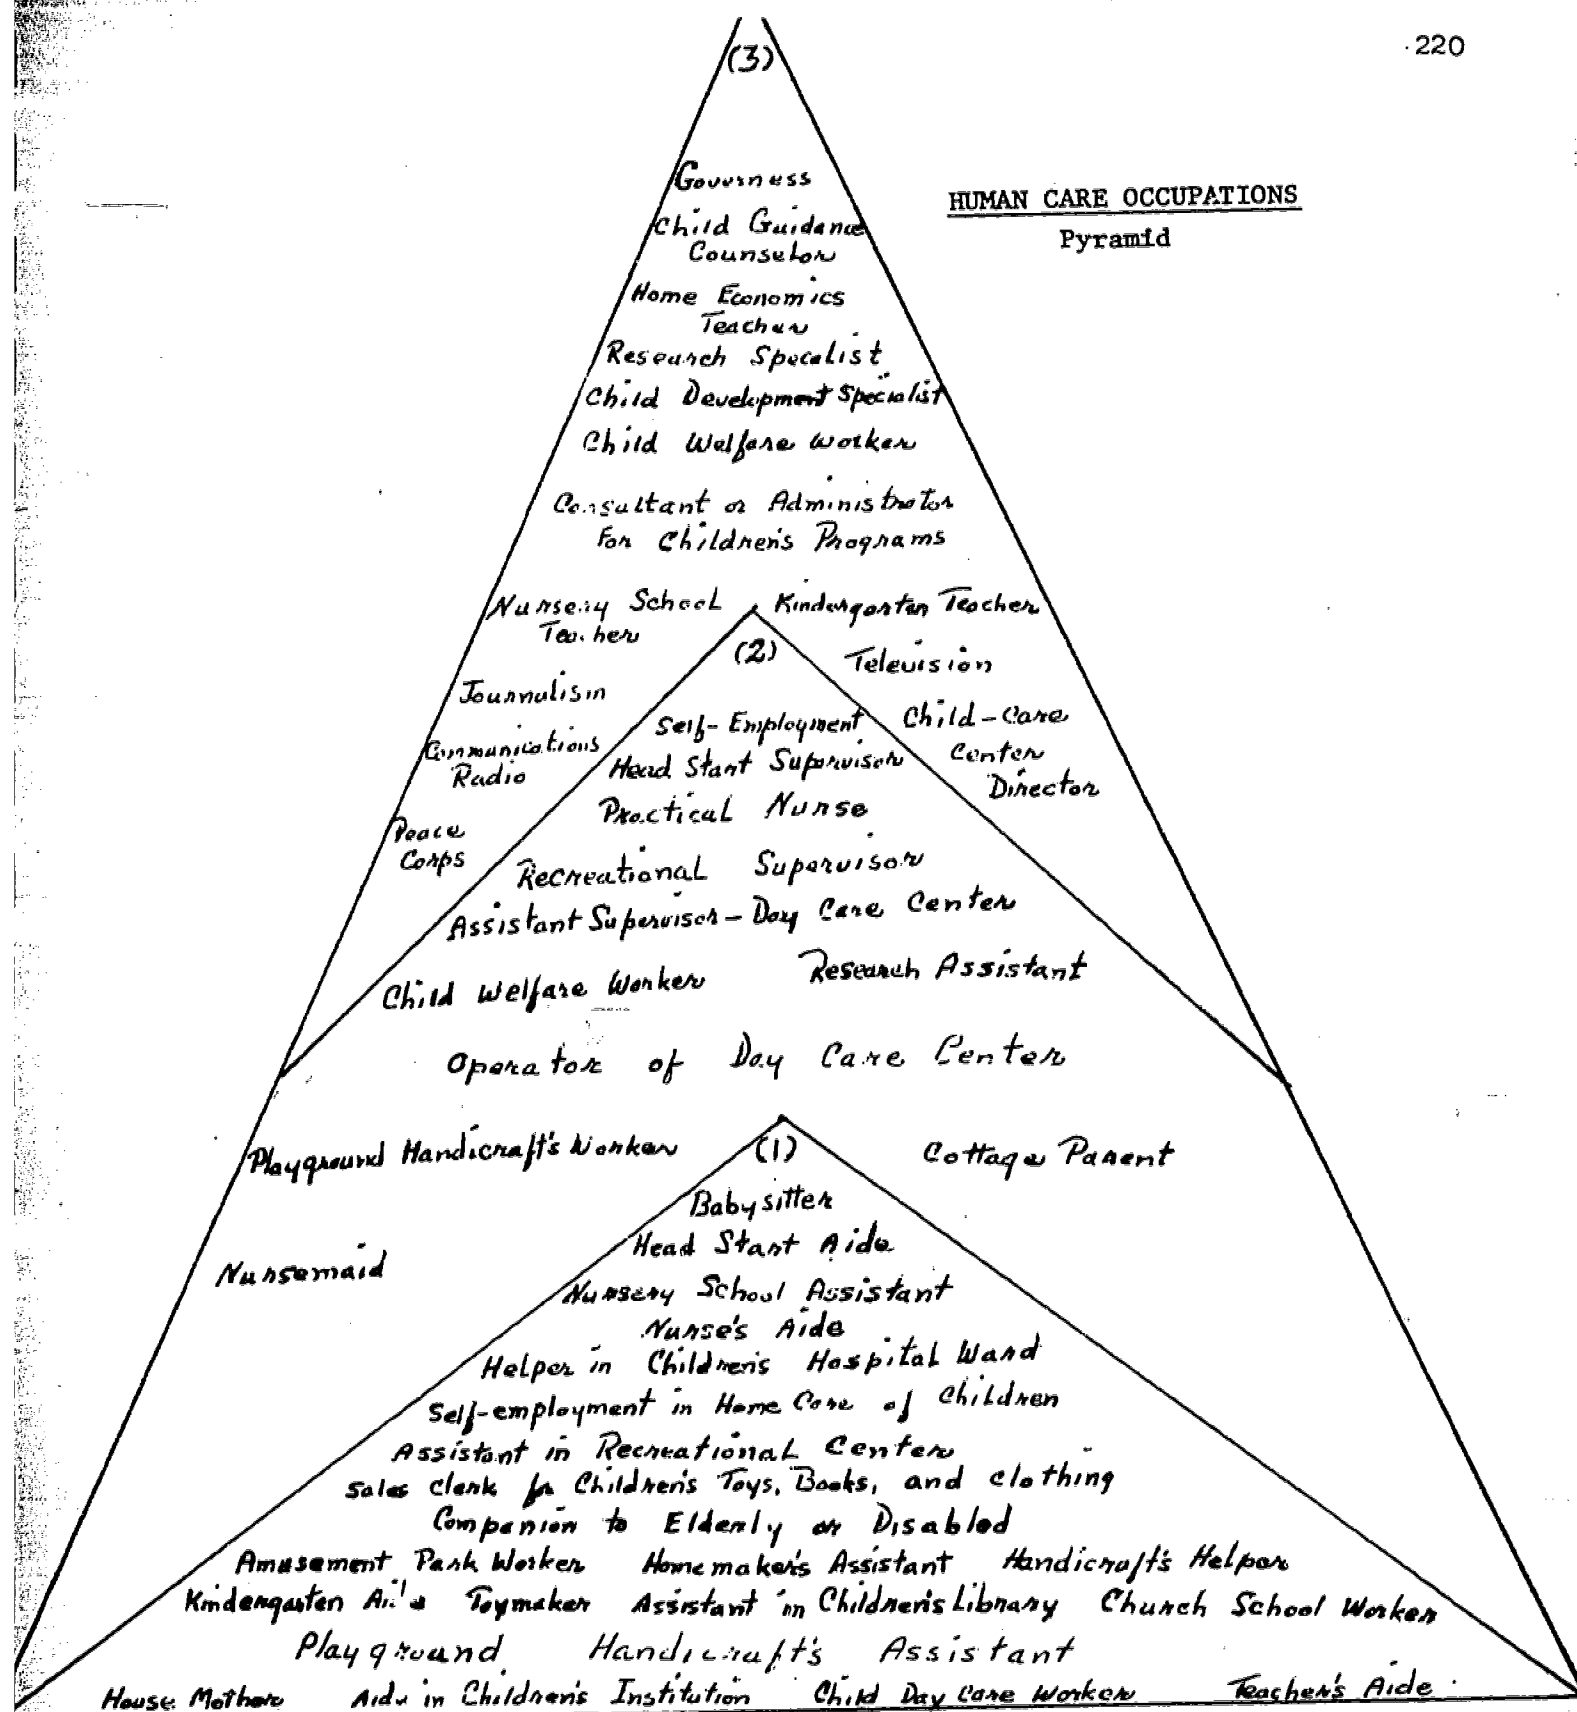 220
(3)
HUMAN CARE OCCUPATIONS
Pyramid
Governess
Child Guidance
Counselor
Home Economics
Teacher
Research Specalist
Child Development Specialist
Child Welfare Worker
Consultant or Administrator
For Children's Programs
Nursery School
Teacher
Kindergarten Teacher
(2)
Television
Journalism
Self-Employment
Child-Care
Center
Director
Communications
Radio
Head Start Supervisor
Practical Nurse
Peace
Corps
Recreational Supervisor
Assistant Supervisor - Day Care Center
Child Welfare Worker
Research Assistant
Operator of Day Care Center
Playground Handicraft's Worker
(1)
Cottage Parent
Babysitter
Head Start Aide
Nursemaid
Nursery School Assistant
Nurse's Aide
Helper in Children's Hospital Ward
Self-employment in Home Care of Children
Assistant in Recreational Center
Sales Clerk for Children's Toys, Books, and clothing
Companion to Elderly or Disabled
Amusement Park Worker Homemaker's Assistant Handicraft's Helper
Kindergarten Aide Toymaker Assistant in Children's Library Church School Worker
Playground Handicraft's Assistant
House Mother Aide in Children's Institution Child Day Care Worker Teacher's Aide